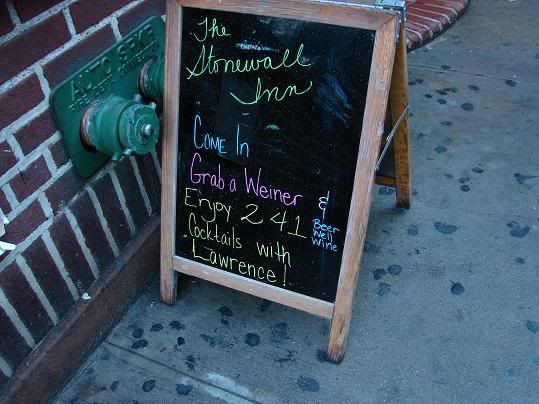 AUTO SPKR
The
Stonewall
Inn
COME In
Grab a Weiner &
Enjoy 2 4 1
Beer
Well
Wine
Cocktails with
Lawrence!